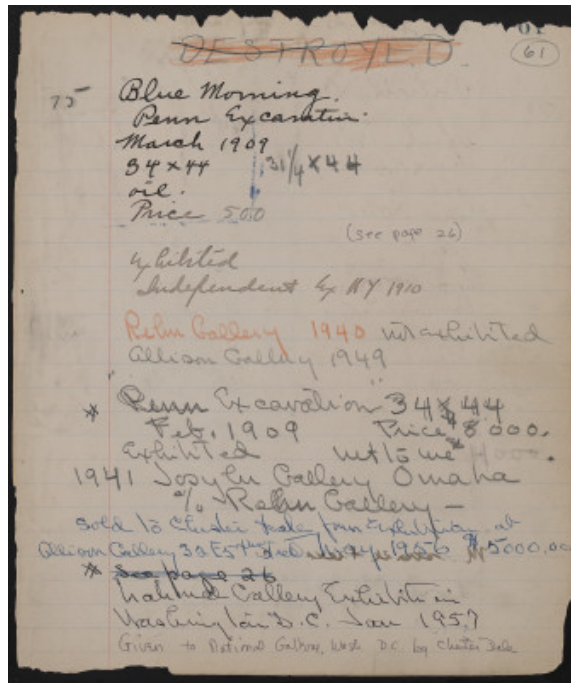 61
DESTROYED
75 Blue Morning.
Penn Excavation.
March 1909
34 x 44 31 1/4 x 44
oil.
Price 500
(see page 26)
Exhibited
Independent Ex NY 1910
Rehn Gallery 1940 not exhibited
Allison Gallery 1949
* "Penn Excavation" 34 x 44
Feb. 1909 Price $8000.
Exhibited net to me $4000.
1941 Joslyn Gallery Omaha
% Rehn Gallery —
Sold to Chester Dale from Exhibition at
Allison Gallery 32 E 57th St May 1956 $5000.00
* See page 26
National Gallery Exhibition
Washington D.C. Jan 1957
Given to National Gallery, Wash D.C. by Chester Dale